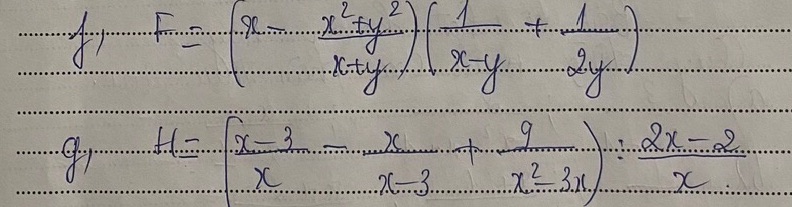 f, F = (x - \frac{x^2+y^2}{x+y}) (\frac{1}{x-y} + \frac{1}{2y})
g, H = (\frac{x-3}{x} - \frac{x}{x-3} + \frac{9}{x^2-3x}) : \frac{2x-2}{x}.